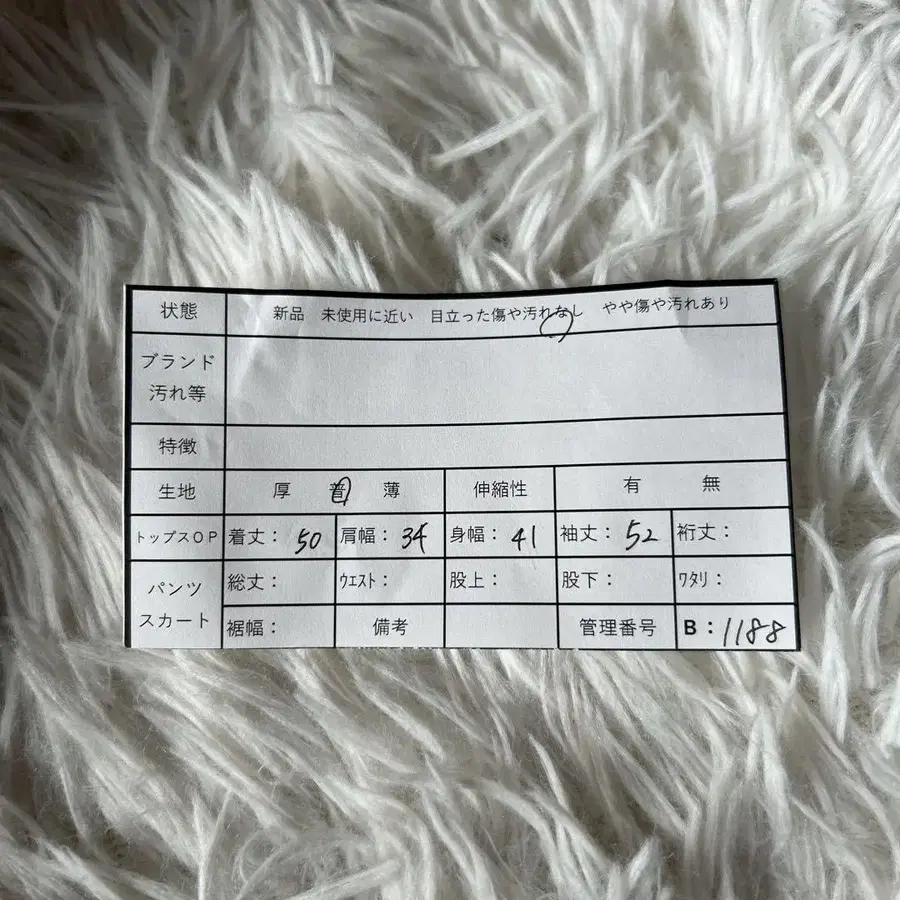 状態 新品 未使用に近い 目立った傷や汚れなし やや傷や汚れあり
ブランド
汚れ等
特徴
生地 厚 普 薄 伸縮性 有 無
トップスOP 着丈: 50 肩幅: 34 身幅: 41 袖丈: 52 裄丈:
パンツ
スカート
総丈: ウエスト: 股上: 股下: ワタリ:
裾幅: 備考 管理番号 B: 1188